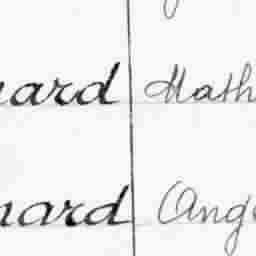 nard Math
nard Ang